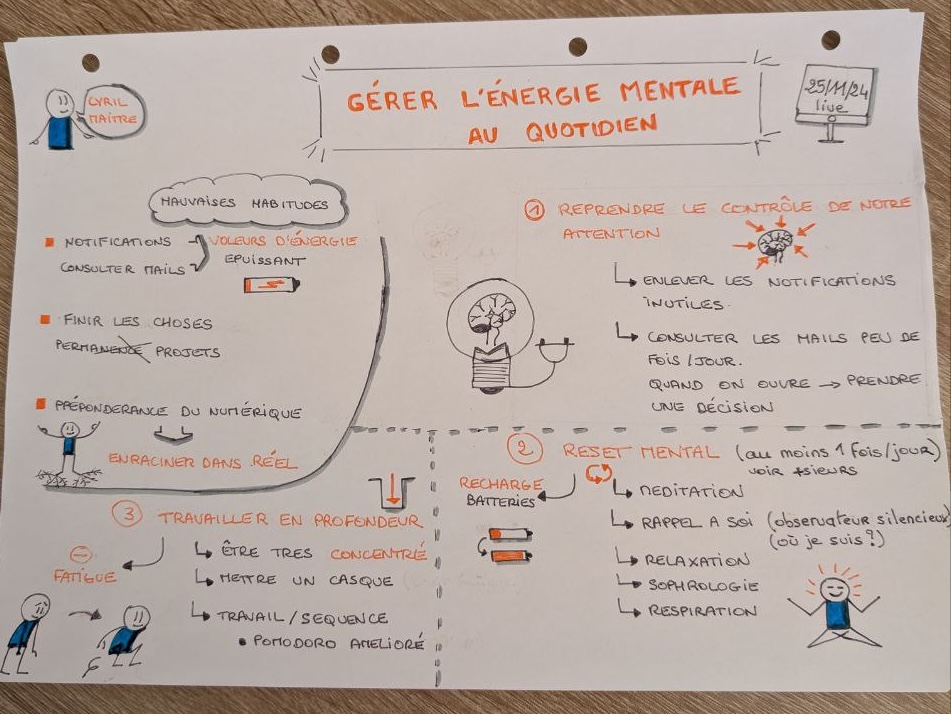 CYRIL
MAÎTRE
GÉRER L'ÉNERGIE MENTALE
AU QUOTIDIEN
25/11/24
live
MAUVAISES HABITUDES
NOTIFICATIONS
CONSULTER MAILS
VOLEURS D'ÉNERGIE
EPUISSANT
FINIR LES CHOSES
PERMANENCE PROJETS
PRÉPONDERANCE DU NUMÉRIQUE
ENRACINER DANS RÉEL
1 REPRENDRE LE CONTRÔLE DE NOTRE
ATTENTION
ENLEVER LES NOTIFICATIONS
INUTILES.
CONSULTER LES MAILS PEU DE
FOIS/JOUR.
QUAND ON OUVRE → PRENDRE
UNE DÉCISION
2 RESET MENTAL (au moins 1 fois/jour)
voir +sieurs
RECHARGE
BATTERIES
MEDITATION
RAPPEL A SOI (observateur silencieux)
(où je suis?)
RELAXATION
SOPHROLOGIE
RESPIRATION
3 TRAVAILLER EN PROFONDEUR
FATIGUE
ÊTRE TRES CONCENTRÉ
METTRE UN CASQUE
TRAVAIL/SEQUENCE
• POMODORO AMELIORÉ